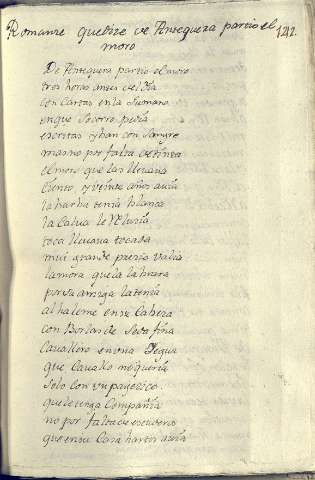 Romanze que dize de Antequera partio el
moro
1212.
De Antequera partio el moro
tres horas antes del Dia
con Cartas en la Su mano
en que Socorro pedia
escritas yban con Sangre
mas no por falta de tinta
el moro que las llevava
Ciento, y veinte años avia
la barba tenia blanca
la Calva le Reluzia
toca llevava tocada
mui grande precio valia
la mora que la labrara
por su amiga la tenia
al haleme en su Cabeza
con Borlas de Seda fina
Cavallero en una Yegua
que Cavallo no queria
Solo con un pagezico
que le tenga Compañia
no por falta de escuderos
que en su Casa hartos avia